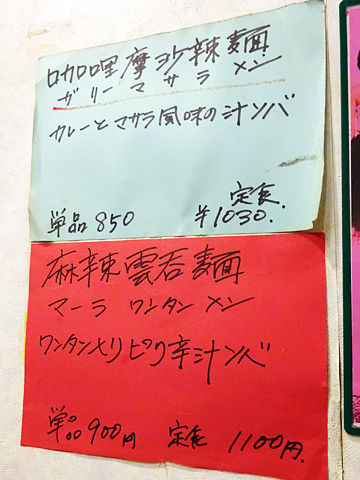 咖哩摩沙辣麺
ガリーマサラメン
カレーとマサラ風味の汁ソバ
定食
単品 850 ¥1030.
麻辣雲呑麺
マーラワンタンメン
ワンタン入りピリ辛汁ソバ
単品900円 定食 1100円.